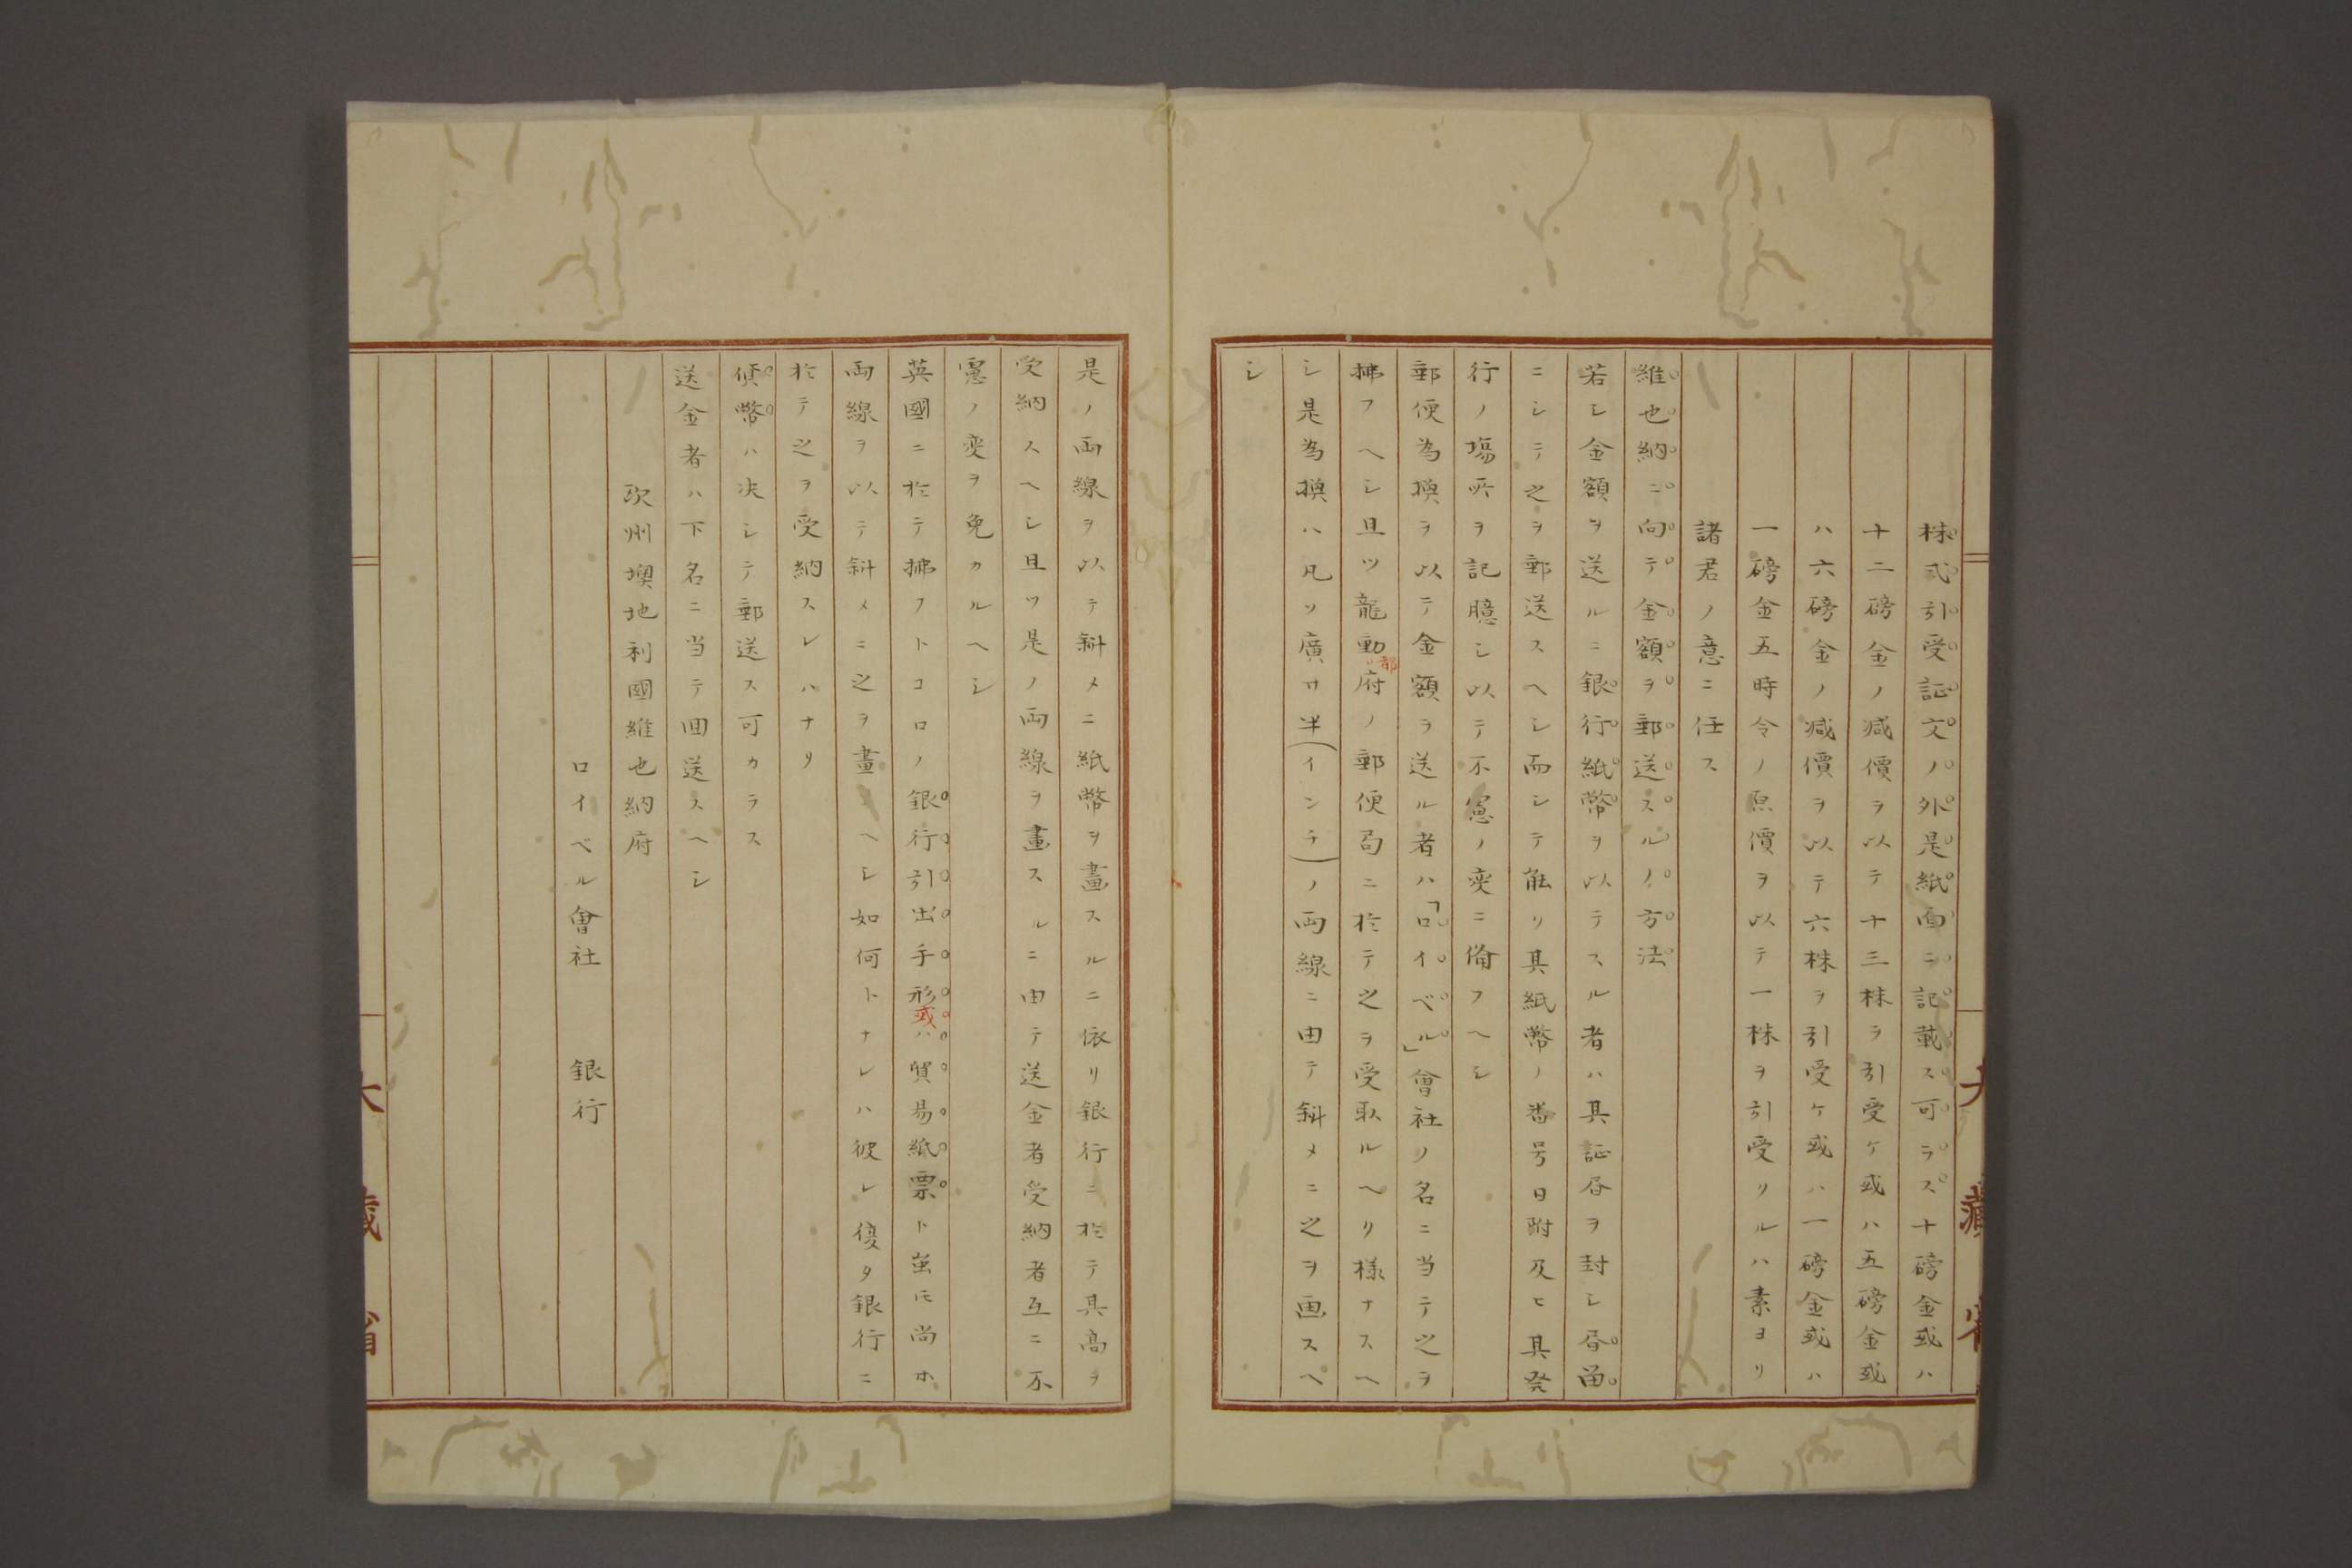 株式引受証文ノ外是紙面ニ記載ス可ラス十磅金或ハ
十二磅金ノ減價ヲ以テ十三株ヲ引受ケ或ハ五磅金或
ハ六磅金ノ減價ヲ以テ六株ヲ引受ケ或ハ一磅金或ハ
一磅金五時令ノ原價ヲ以テ一株ヲ引受リルハ素ヨリ
諸君ノ意ニ任ス
維也納ニ向テ金額ヲ郵送スルノ方法
若シ金額ヲ送ルニ銀行紙幣ヲ以テスル者ハ其証昏ヲ封シ昏留
ニシテ之ヲ郵送スヘシ而シテ能リ其紙幣ノ番号日附及ヒ其発
行ノ塲所ヲ記臆シ以テ不慮ノ変ニ備フヘシ
郵便為換ヲ以テ金額ヲ送ル者ハ「ロイベル」會社ノ名ニ当テ之ヲ
拂フヘシ且ツ龍動府ノ郵便局ニ於テ之ヲ受取ルヘリ様ナスヘ
都
シ是為換ハ凡ソ廣サ半(インチ)ノ両線ニ由テ斜メニ之ヲ画スヘ
シ
是ノ両線ヲ以テ斜メニ紙幣ヲ畫スルニ依リ銀行ニ於テ其高ヲ
受納スヘシ且ツ是ノ両線ヲ畫スルニ由テ送金者受納者互ニ不
慮ノ変ヲ免カルヘシ
英國ニ於テ拂フトコロノ銀行引出手形或ハ貿易紙票ト𧈧ㇳモ尚ホ
両線ヲ以テ斜メニ之ヲ畫スヘシ如何トナレハ彼レ復タ銀行ニ
於テ之ヲ受納スレハナリ
債幣ハ决シテ郵送ス可カラス
送金者ハ下名ニ当テ囬送スヘシ
欧州墺地利國維也納府
ロイベル會社 銀行
大藏省